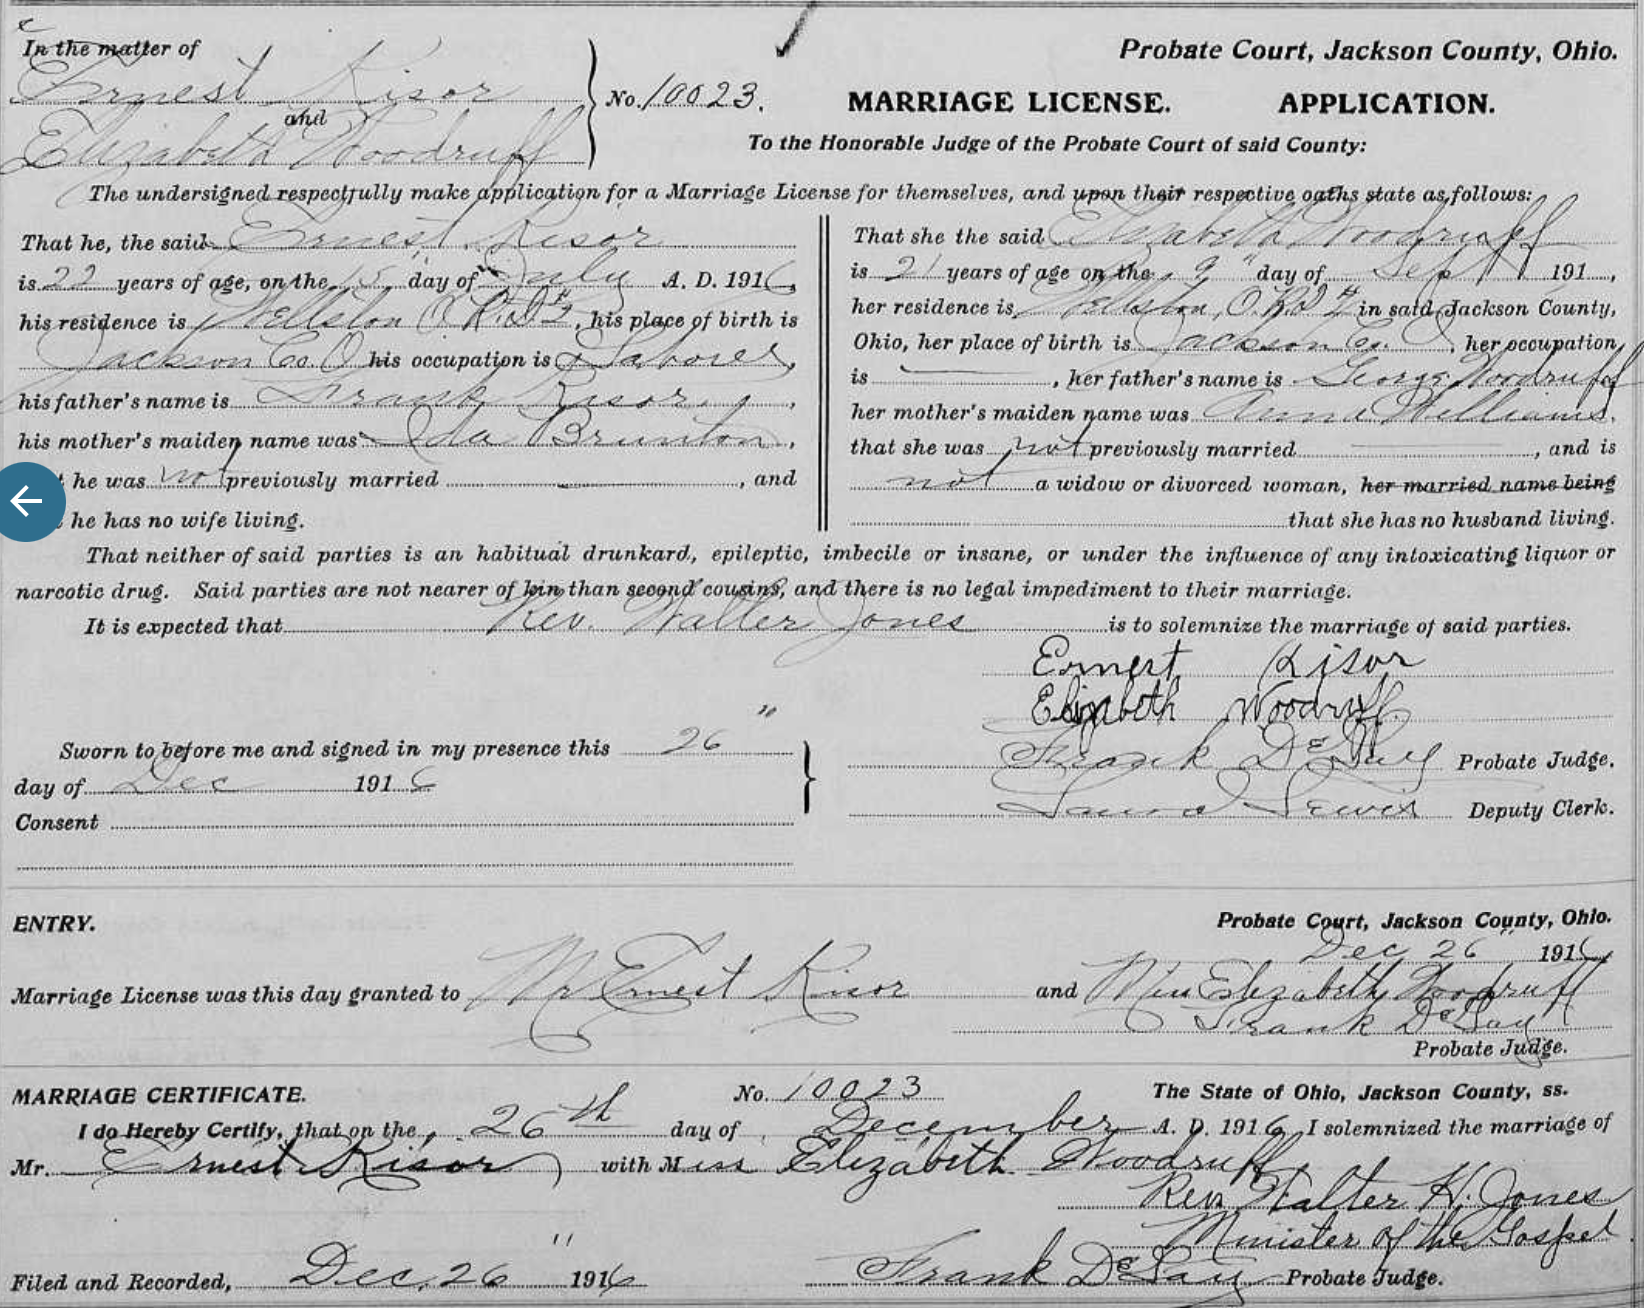 In the matter of
Ernest Kisor
and
Elizabeth Woodruff
No. 10023.
Probate Court, Jackson County, Ohio.
MARRIAGE LICENSE. APPLICATION.
To the Honorable Judge of the Probate Court of said County:
The undersigned respectfully make application for a Marriage License for themselves, and upon their respective oaths state as follows:
That he, the said Ernest Kisor
is 22 years of age, on the 15" day of July A. D. 1916,
his residence is Wellston O. R.D. , his place of birth is
Jackson Co. O his occupation is Laborer,
his father's name is Frank Kisor,
his mother's maiden name was Ida Brunton,
he was not previously married —, and
he has no wife living.
That she the said Elizabeth Woodruff
is 21 years of age on the 9" day of Sep 191 ,
her residence is Wellston, O. R.D in said Jackson County,
Ohio, her place of birth is Jackson Co. O, her occupation
is —, her father's name is George Woodruff
her mother's maiden name was Anna Williams.
that she was not previously married —, and is
not a widow or divorced woman, her married name being
that she has no husband living.
That neither of said parties is an habitual drunkard, epileptic, imbecile or insane, or under the influence of any intoxicating liquor or
narcotic drug. Said parties are not nearer of kin than second cousins, and there is no legal impediment to their marriage.
It is expected that Rev. Walter Jones is to solemnize the marriage of said parties.
Ernest Kisor
Elizabeth Woodruff
Sworn to before me and signed in my presence this 26"
day of Dec 1916
Consent
Frank DeLay Probate Judge.
Lewis Deputy Clerk.
ENTRY.
Probate Court, Jackson County, Ohio.
Dec 26" 1916
Marriage License was this day granted to Mr Ernest Kisor and Miss Elizabeth Woodruff
Frank DeLay
Probate Judge.
MARRIAGE CERTIFICATE. No. 10023 The State of Ohio, Jackson County, ss.
I do Hereby Certify, that on the 26th day of December A. D. 1916 I solemnized the marriage of
Mr. Ernest Kisor with Miss Elizabeth Woodruff
Rev. Walter H. Jones
Minister of the Gospel
Filed and Recorded, Dec. 26" 1916 Frank DeLay Probate Judge.